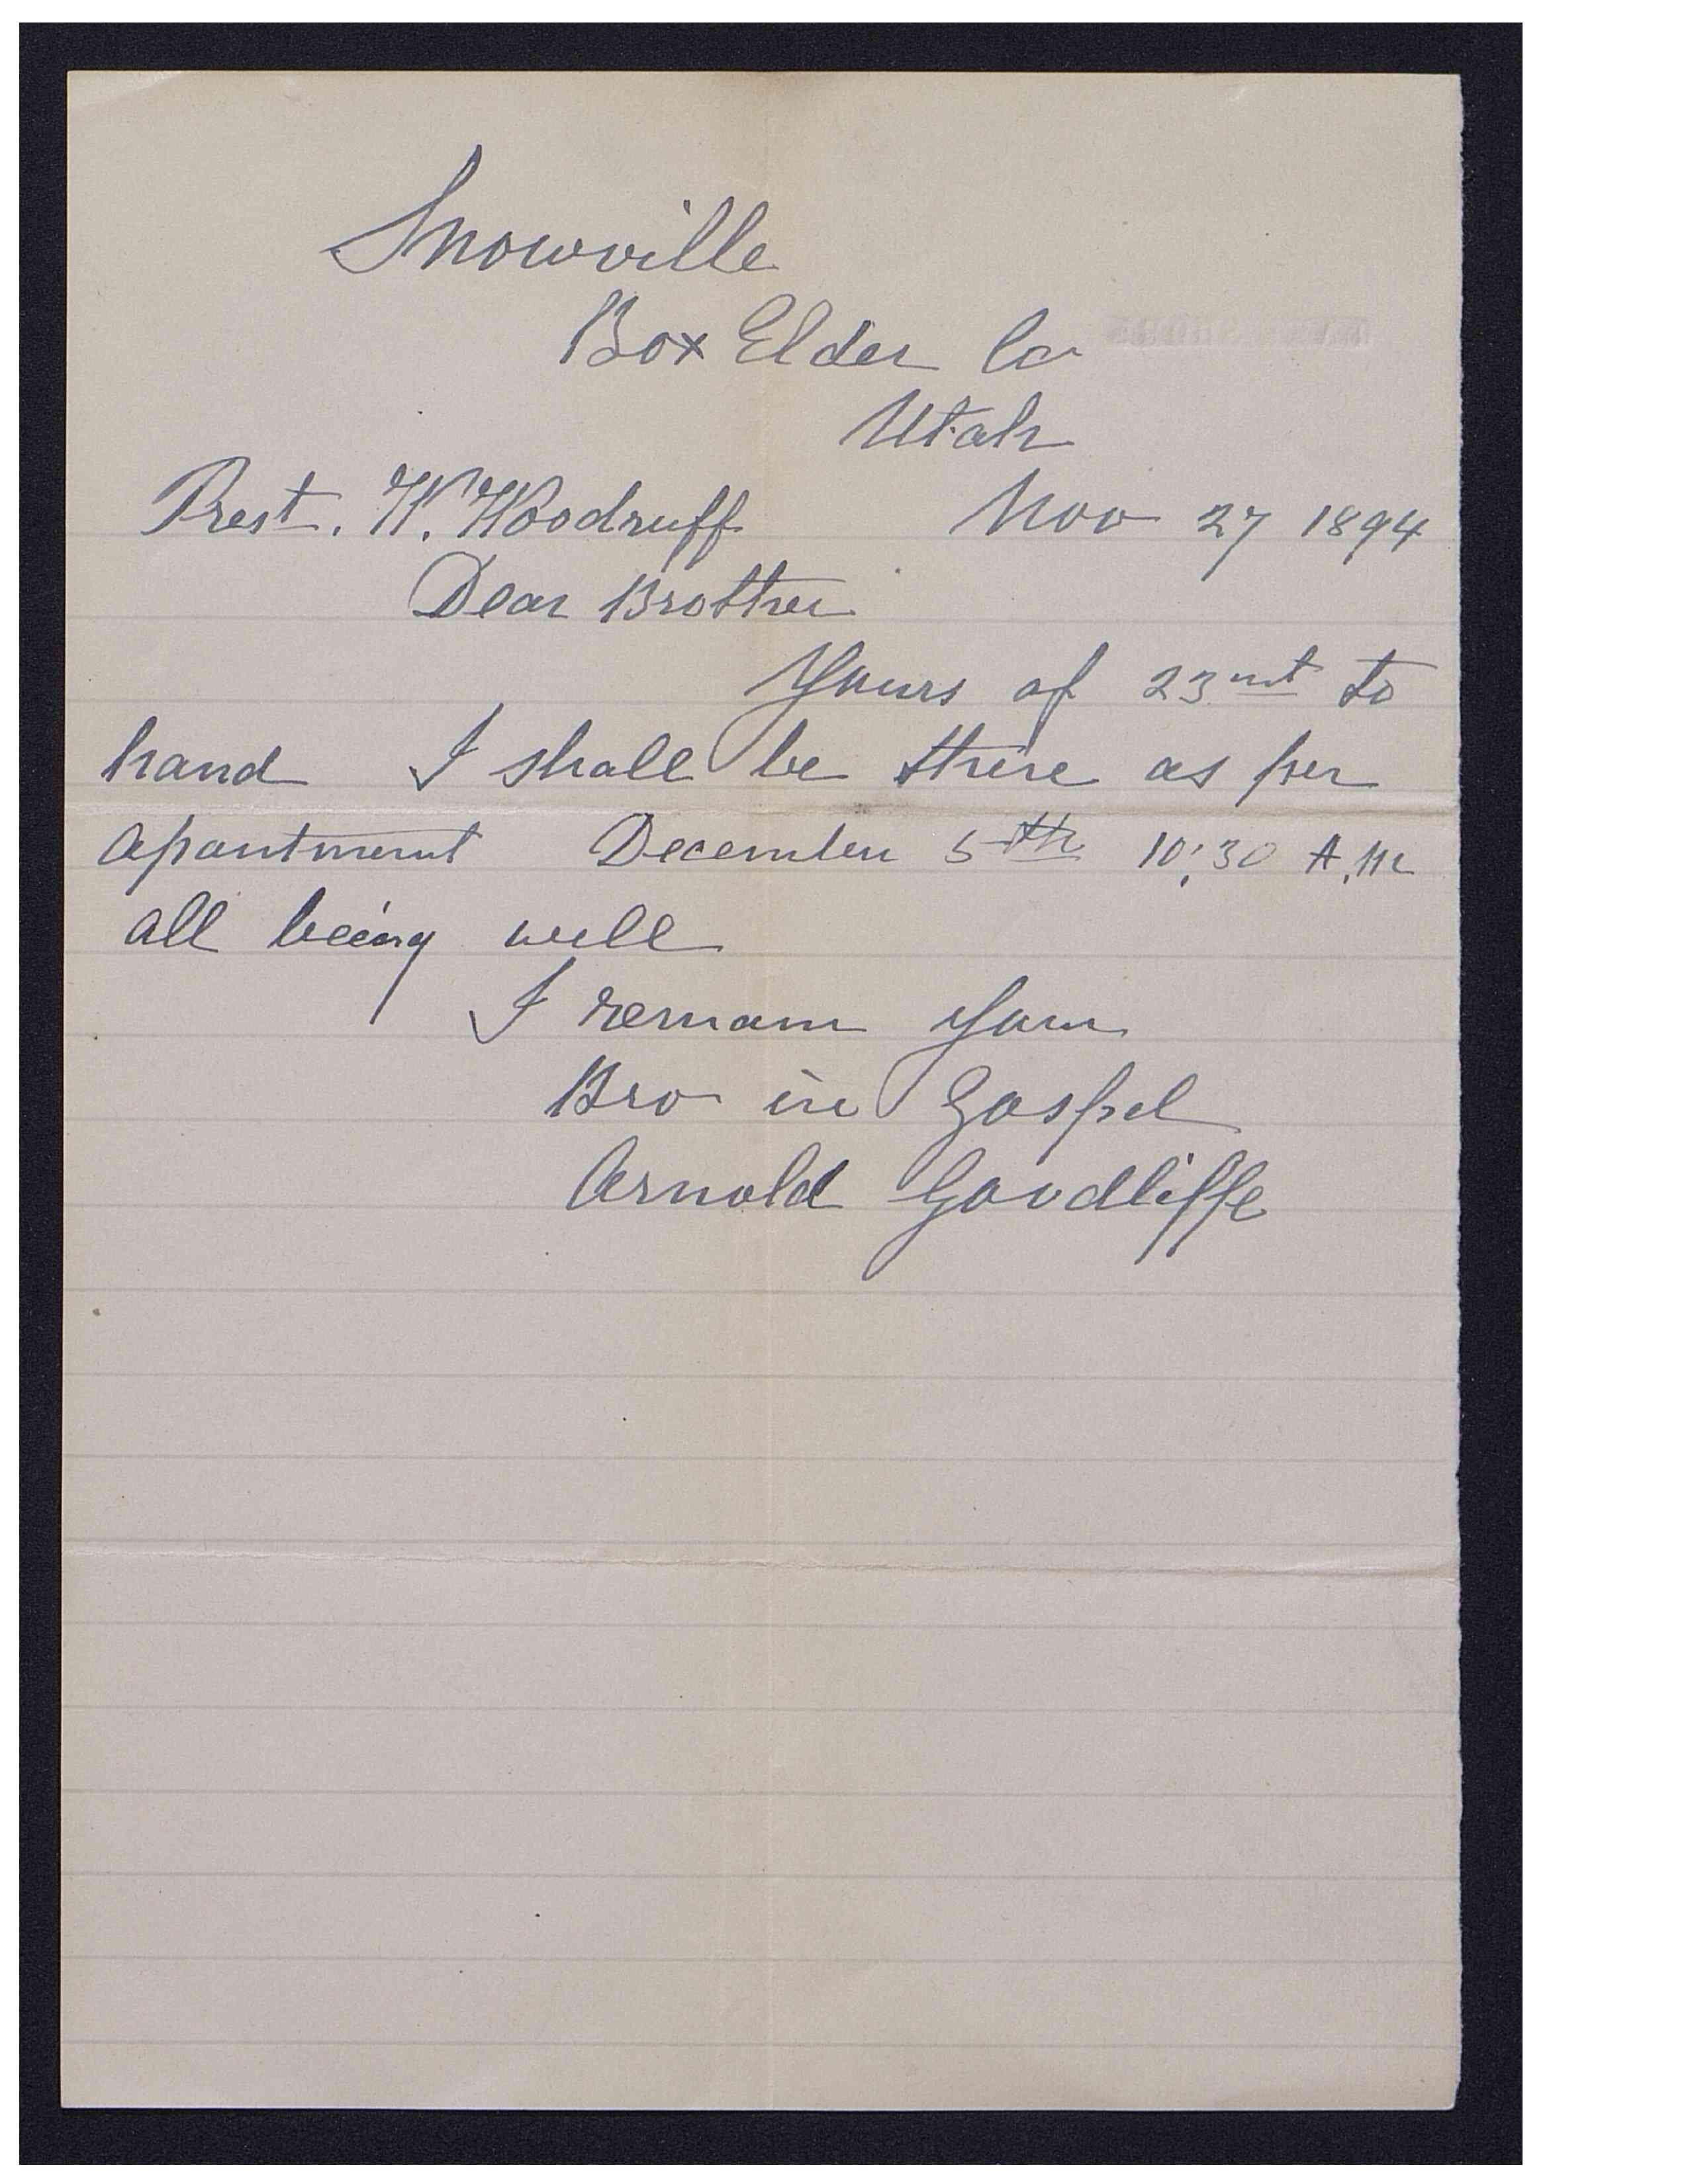 Snowville
Box Elder Co
Utah
Prest. W. Woodruff Nov 27 1894
Dear Brother
Yours of 23 to
hand I shall be there as per
apointment December 5th 10:30 A.M
all being well
I remain Your
Bro in Gospel
Arnold Goodliffe